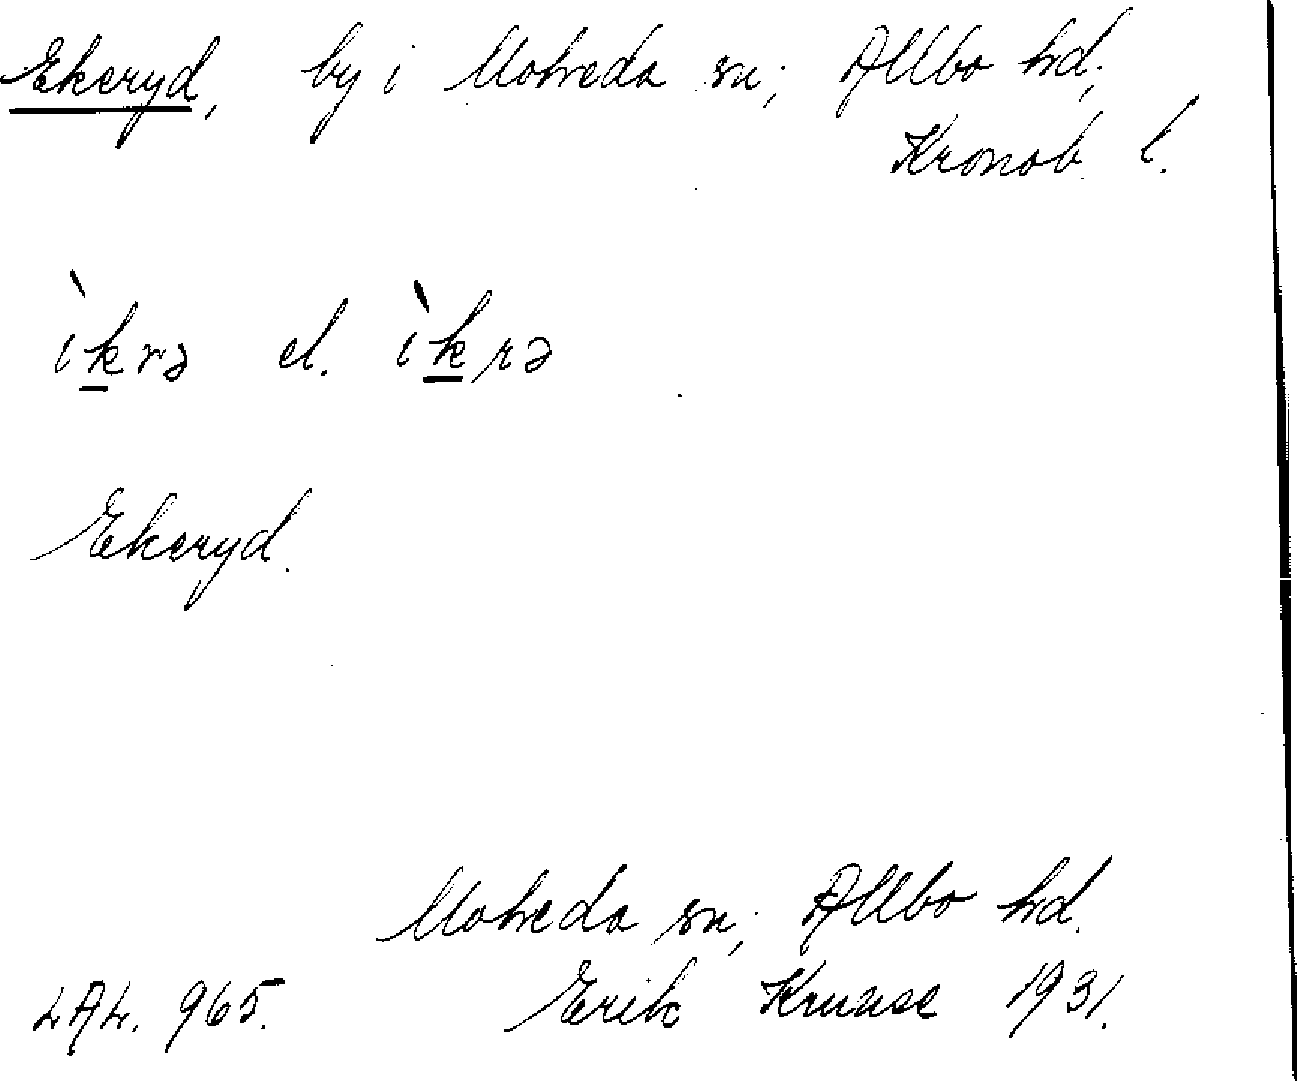 Ekeryd, by i Moheda sn; Allbo hd;
Kronob. l.
ìkrə el. ìkrə
Ekeryd.
Moheda sn; Allbo hd.
LAL. 965. Erik Kruuse 1931.